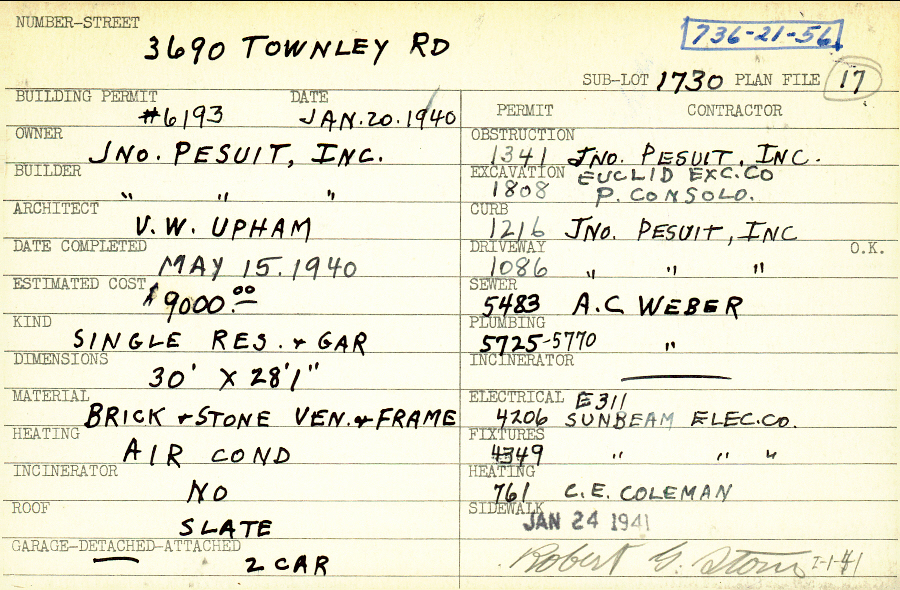 NUMBER-STREET
3690 TOWNLEY RD
736-21-56
SUB-LOT 1730 PLAN FILE 17
BUILDING PERMIT DATE
#6193 JAN.20.1940
OWNER
JNO. PESUIT, INC.
BUILDER
" " "
ARCHITECT
V.W. UPHAM
DATE COMPLETED
MAY 15.1940
ESTIMATED COST
$9000.00
KIND
SINGLE RES. & GAR
DIMENSIONS
30' X 28'1"
MATERIAL
BRICK & STONE VEN. & FRAME
HEATING
AIR COND
INCINERATOR
NO
ROOF
SLATE
GARAGE-DETACHED-ATTACHED
2 CAR
PERMIT CONTRACTOR
OBSTRUCTION
1341 JNO. PESUIT, INC.
EXCAVATION EUCLID EXC.CO
1808 P. CONSOLO.
CURB
1216 JNO. PESUIT, INC
DRIVEWAY O.K.
1086 " " "
SEWER
5483 A.C. WEBER
PLUMBING
5725-5770 "
INCINERATOR
ELECTRICAL E311
4206 SUNBEAM ELEC.CO.
FIXTURES
4349 " " "
HEATING
761 C.E. COLEMAN
SIDEWALK
JAN 24 1941
Robert G.